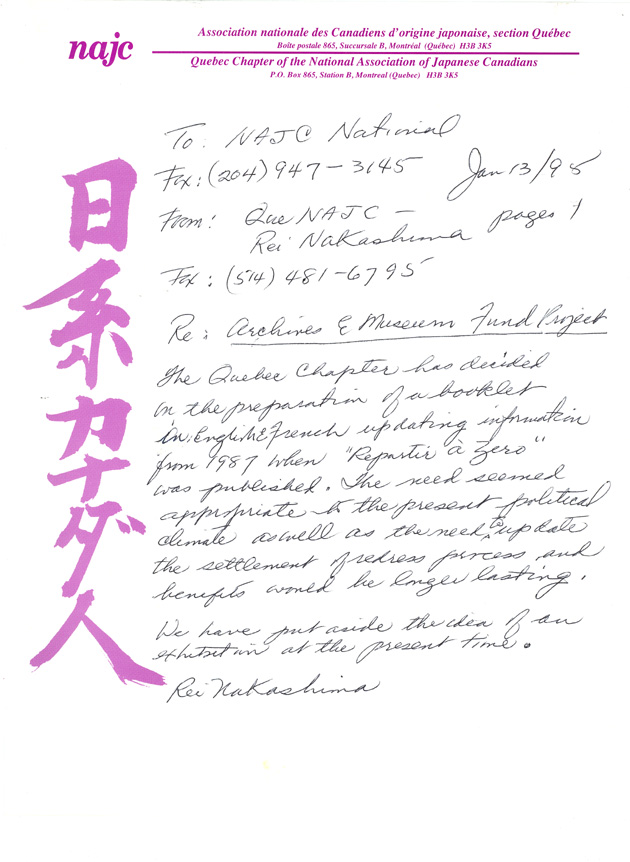 najc
Association nationale des Canadiens d'origine japonaise, section Québec
Boîte postale 865, Succursale B, Montréal (Québec) H3B 3K5
Quebec Chapter of the National Association of Japanese Canadians
P.O. Box 865, Station B, Montreal (Quebec) H3B 3K5
日系カナダ人
To: NAJC National
Fax: (204) 947-3145 Jan 13/95
From: Que NAJC - pages 1
Rei Nakashima
Fax: (514) 481-6795
Re: Archives & Museum Fund Project
The Quebec Chapter has decided
on the preparation of a booklet
in English & French updating information
from 1987 when "Repartir à Zero"
was published. The need seemed
appropriate to the present political
climate as well as the need to update
the settlement of redress process and
benefits would be longer lasting.
We have put aside the idea of an
exhibition at the present time.
Rei Nakashima